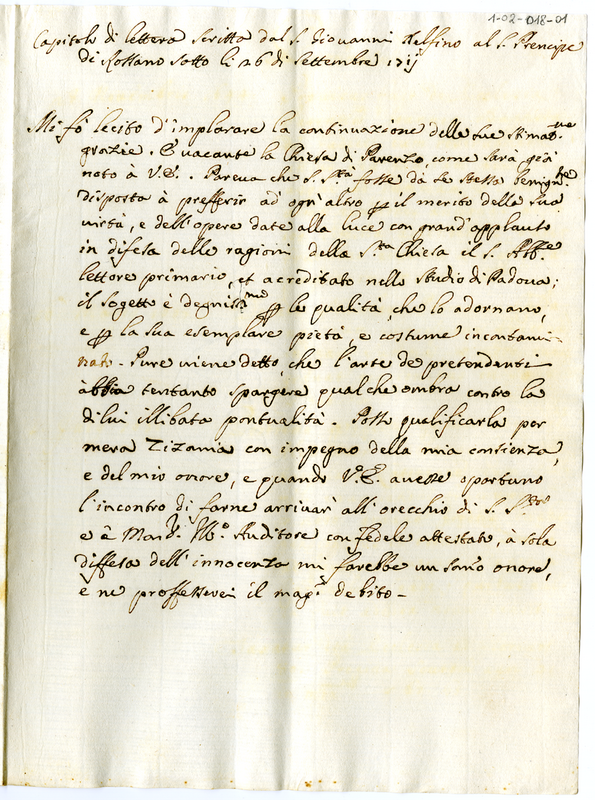 1-02-D18-01
Capitolo di lettera scritta dal S. Giovanni Delfino al S. Prencipe
di Rossano sotto li 26 di Settembre 17ij
Mi fò lecito d'implorare la continuazione delle sue stimat.me
grazie. È vacante la Chiesa di Parenzo, come sarà già
noto à V.E. Pareva che S. S.tà fosse da se stessa benign.te
disposta à prefferir ad ogn'altro per il merito della sua
virtù, e dell'opere date alla luce con grand'applauso
in difesa delle ragioni della S.ta Chiesa il S. Abb.e
lettore primario, et acreditato nello studio di Padova;
il sogetto è degniss.mo per le qualità, che lo adornano,
e per la sua esemplare pietà, e costume incontami-
nato. Pure viene detto, che l'arte de pretendenti
àbbia tentanto spargere qualche ombra contro la
di lui illibata pontualità. Posso qualificarla per
mera Zizania con impegno della mia conscienza,
e del mio onore, e quando V.E. avesse oportuno
l'incontro di farne arrivar all'orecchio di S. S.tà
e è Mon.r Auditore con fedele attestato, à sola
diffesa dell'innocenza mi farebbe un sommo onore,
e ne proffesserei il mag.r debito.